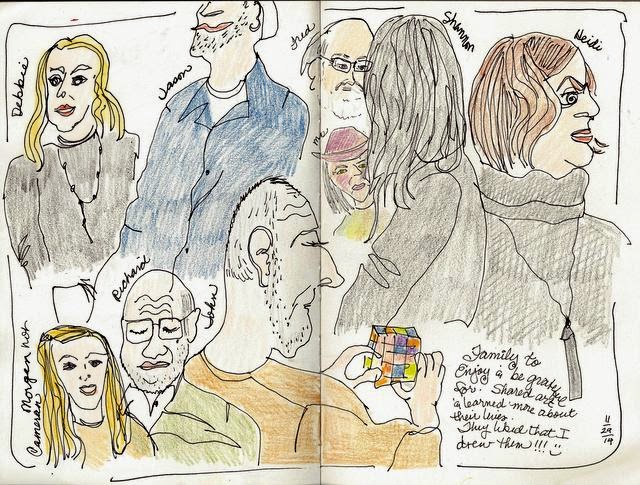 Debbie
Jason
Fred
me
Shannon
Heidi
Richard
John
Morgan not
Cameran
Family to
Enjoy & be grateful
for. Shared art
& learned more about
their lives.
They liked that I
drew them!!!
11
29
19